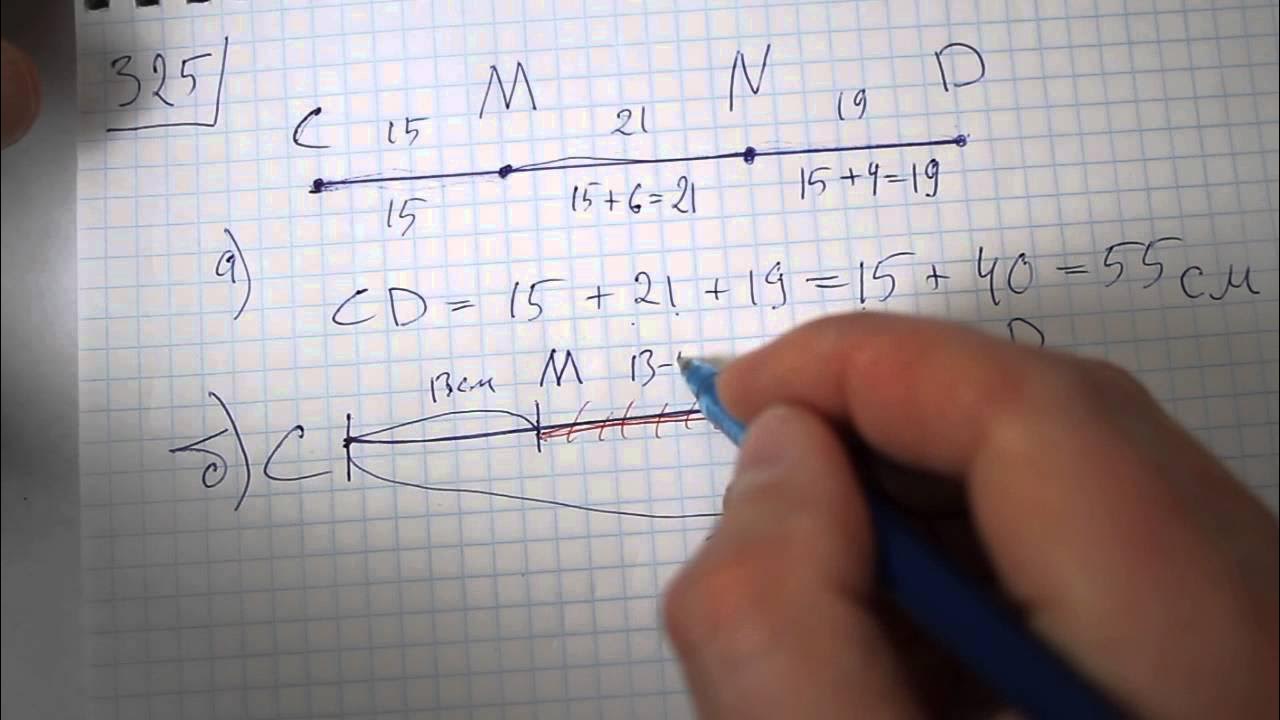 325
C 15 M 21 N 19 D
15 15+6=21 15+4=19
а) CD = 15 + 21 + 19 = 15 + 40 = 55 см
б) C 13см M 13- D